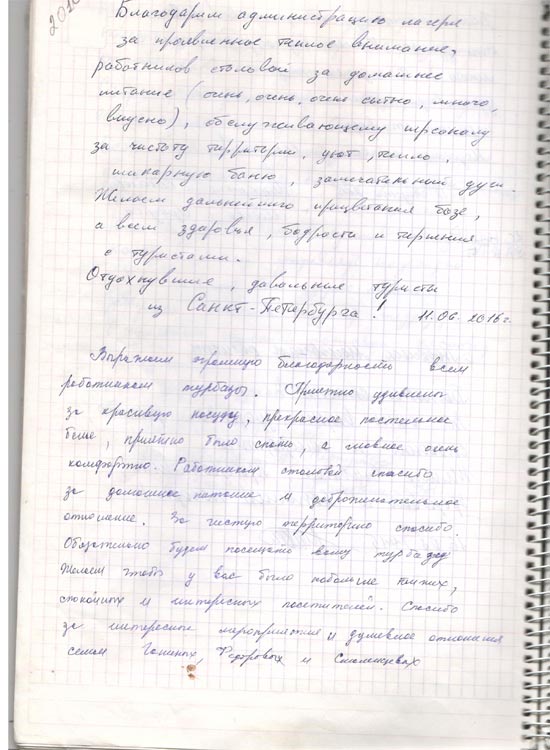 2016
Благодарим администрацию лагеря
за проявленное теплое внимание,
работников столовой за домашнее
питание (очень, очень, очень сытно, много,
вкусно), обслуживающему персоналу
за чистоту территории, уют, тепло,
шикарную баню, замечательный душ.
Желаем дальнейшего процветания базе,
а всем здоровья, бодрости и терпения
с туристами.
Отдохнувшие, довольные туристы
из Санкт-Петербурга! 11.06.2016г.
Выражаем огромную благодарность всем
работникам турбазы. Приятно удивлены
за красивую посуду, прекрасное постельное
белье, приятно было спать, а главное очень
комфортно. Работникам столовой спасибо
за домашнее питание и доброжелательное
отношение. За чистую территорию спасибо.
Обязательно будем посещать вашу турбазу
Желаем чтобы у вас было побольше
спокойных и интересных посетителей. Спасибо
за интересные мероприятия и душевное отношения
семьи Федоровых и